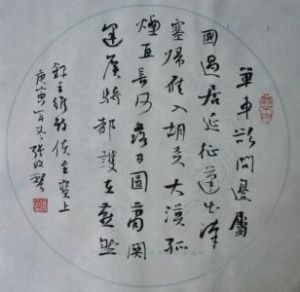 單車欲問邊屬
國過居延征蓬出漢
塞歸雁入胡天大漠孤
煙直長河落日圓蕭關
逢候騎都護在燕然
錄王維詩使至塞上
庚寅年冬張改琴